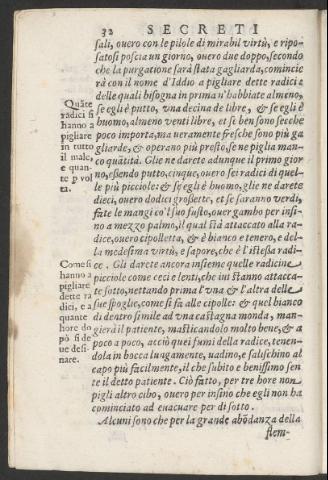 32 SECRETI
sali, ouero con le pilole di mirabil virtù, e ripo-
satosi poscia un giorno, ouero due doppo, secondo
che la purgatione sarà stata gagliarda, comincie
rà con il nome d'Iddio a pigliare dette radici e
delle quali bisogna in prima n'habbiate almeno,
se egli è putto, vna decina de libre, & se egli è
huomo, almeno venti libre, et se ben sono secche
poco importa, ma veramente fresche sono più ga
gliarde, & operano più presto, se ne piglia man-
co quãtità. Glie ne darete adunque il primo gior
no, essendo putto, cinque, ouero sei radici di quel-
le più picciole: & se egli è huomo, glie ne darete
dieci, ouero dodici grossette, et se saranno verdi,
fate le mangi co'l suo fusto, ouer gambo per insi-
no a mezzo palmo, il qual stà attaccato alla ra-
dice, ouero cipolletta, & è bianco e tenero, e del-
la medesima virtù, e sapore, che è l'istessa radi-
ce. Gli darete ancora insieme quelle radicine
picciole come ceci e lenti, che iui stanno attacca-
te sotto, nettando prima l'vna & l'altra delle
sue spoglie, come si fa alle cipolle: & quel bianco
di dentro simile ad vna castagna monda, man-
gierà il patiente, masticandolo molto bene, & a
poco a poco, acciò quei fumi della radice, tenen-
dola in bocca lungamente, uadino, e salischino al
capo più facilmente, il che subito e benissimo sen
te il detto patiente. Ciò fatto, per tre hore non
pigli altro cibo, ouero per insino che egli non ha
cominciato ad euacuare per di sotto.
Alcuni sono che per la grande abõdanza della
flem-
Quãte
radici si
hanno a
pigliare
in tutto
il male,
e quan-
te p vol
ta.
Come si
hanno a
pigliare
dette ra
dici, e a
quante
hore do
pò si de
ue desi-
nare.